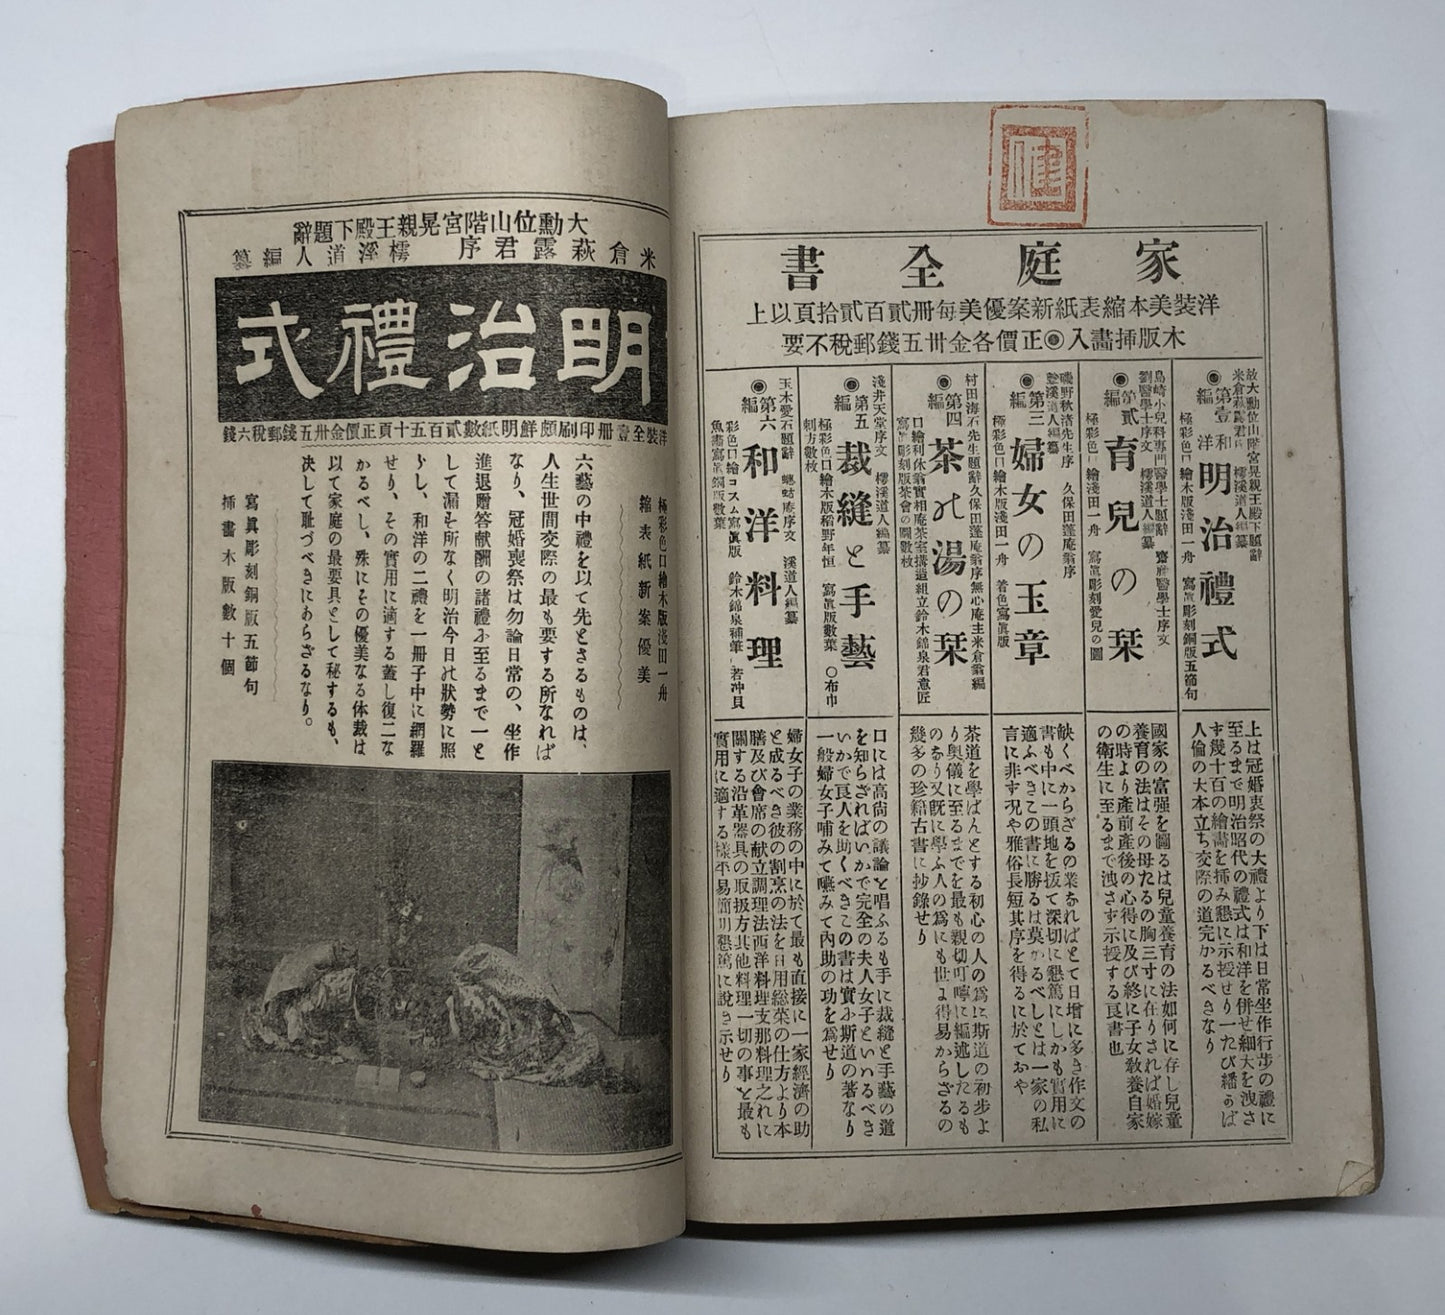 家庭全書
洋裝美本縮表紙新案優美每册貳百貳拾頁以上
木版挿畵入◉正價各金卅五錢郵稅不要
放大勳位山階宮晃親王殿下題辭
米倉萩露君序 檽溪道人編纂
◉第壹編 和洋 明治禮式
極彩色口繪木版淺田一舟 寫眞彫刻銅版五節句
上は冠婚喪祭の大禮より下は日常坐作行步の禮に
至るまで明治昭代の禮式は和洋を併せ細大を洩さ
ず幾十百の繪畵を挿み懇に示授せり一たび繙かば
人倫の大本立ち交際の道完かるべきなり
島崎小兒科專門醫學士題辭 齋藤醫學士序文
劉醫學士序文 檽溪道人編纂
◉第貳編 育兒の栞
極彩色口繪淺田一舟 寫眞彫刻愛兒の圖
國家の富强を圖るは兒童養育の法如何に存し兒童
養育の法はその母たるの胸三寸に在りされば婚嫁
の時より產前產後の心得に及び終に子女敎養自家
の衛生に至るまで洩さず示授する良書也
磯野秋渚先生序 久保田蓬庵翁序
檽溪道人編纂
◉第三編 婦女の玉章
極彩色口繪木版淺田一舟 着色寫眞版
缺くべからざるの業なればとて日增に多き作文の
書も中に一頭地を拔て深切に懇篤にしかも實用に
適ふべきこの書に勝るは莫かるべしとは一家の私
言に非ず況や雅俗長短其序を得るに於ておや
村田海石先生題辭久保田蓬庵翁序無心庵主米倉翁編
◉第四編 茶の湯の栞
口繪利休翁實相庵茶室搆造組立鈴木錦泉君意匠
寫眞彫刻版茶會の圖數枚
茶道を學ばんとする初心の人の爲に斯道の初步よ
り奥儀に至るまでを最も親切叮嚀に編述したるも
のなり又既に學ふ人の爲にも世に得易からざるの
幾多の珍籍古書に抄錄せり
淺井天堂序文 檽溪道人編纂
◉第五編 裁縫と手藝
極彩色口繪木版稻野年恒 寫眞版數葉 〇布巾
刺方數枚
口には高尙の議論と唱ふるも手に裁縫と手藝の道
を知らざればいかで完全の夫人女子といいるべき
いかで良人を助くべきこの書は實ふ斯道の著なり
一般婦女子哺みて嚥みて內助の功を爲せり
玉木愛石題辭 蟪蛄庵序文 溪道人編纂
◉第六編 和洋料理
彩色口繪コスム寫眞版 鈴木錦泉補筆 若冲貝
魚藻寫眞銅版數葉
婦女子の業務の中に於て最も直接に一家經濟の助
と成るべき彼の割烹の法を日用総菜の仕方より本
膳及び會席の献立調理法西洋料理支那料理之れに
關する沿革器具の取扱方其他料理一切の事と最も
實用に適する樣平易簡明懇篤に說き示せり
大勳位山階宮晃親王殿下題辭
米倉萩露君序 檽溪道人編纂
明治禮式
洋裝全壹册印刷頗鮮明紙數貳百五十頁正價金卅五錢郵稅六錢
極彩色口繪木版淺田一舟
縮表紙新案優美
六藝の中禮を以て先とさるものは、
人生世間交際の最も要する所なれば
なり、冠婚喪祭は勿論日常の、坐作
進退贈答献酬の諸禮ふ至るまで一と
して漏そ所なく明治今日の狀勢に照
らし、和洋の二禮を一册子中に網羅
せり、その實用に適する蓋し復二な
かるべし、殊にその優美なる体裁は
以て家庭の最要具として秘するも、
决して耻づべきにあらざるなり。
寫眞彫刻銅版五節句
挿畵木版數十個